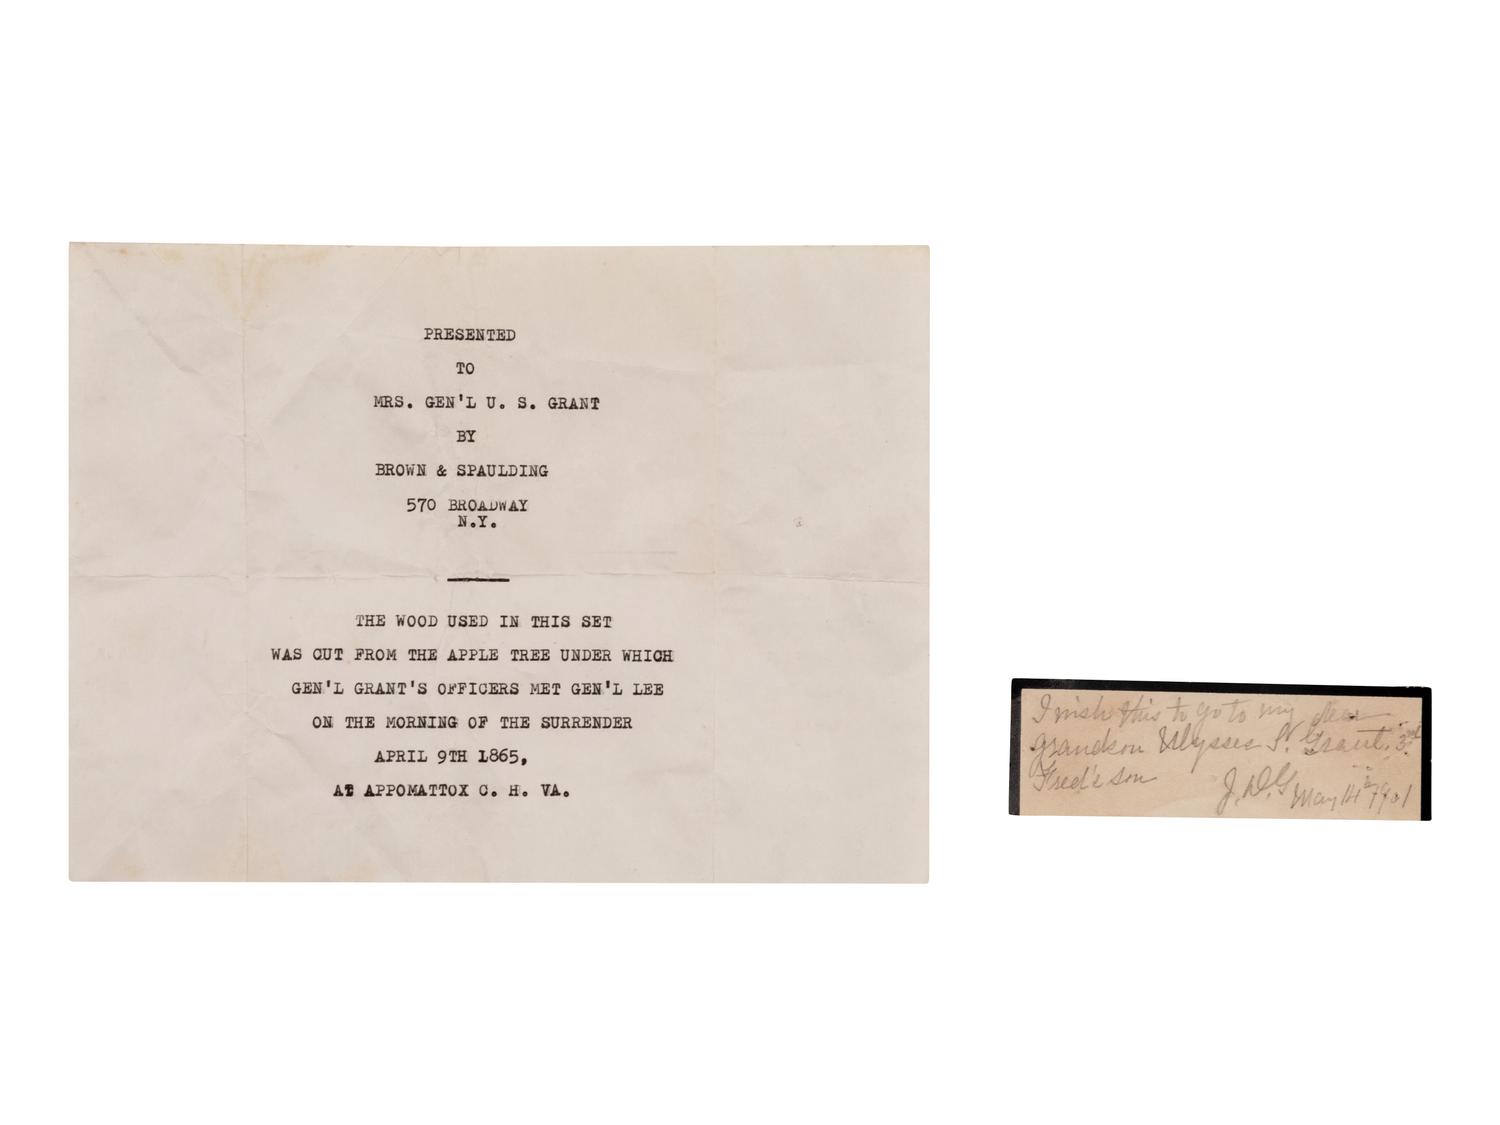 PRESENTED
TO
MRS. GEN'L U. S. GRANT
BY
BROWN & SPAULDING
570 BROADWAY
N.Y.
THE WOOD USED IN THIS SET
WAS CUT FROM THE APPLE TREE UNDER WHICH
GEN'L GRANT'S OFFICERS MET GEN'L LEE
ON THE MORNING OF THE SURRENDER
APRIL 9TH 1865,
AT APPOMATTOX C. H. VA.
I wish this to go to my dear
grandson Ulysses S. Grant. 3rd
Fred's son
J. D. G May 14th 1901